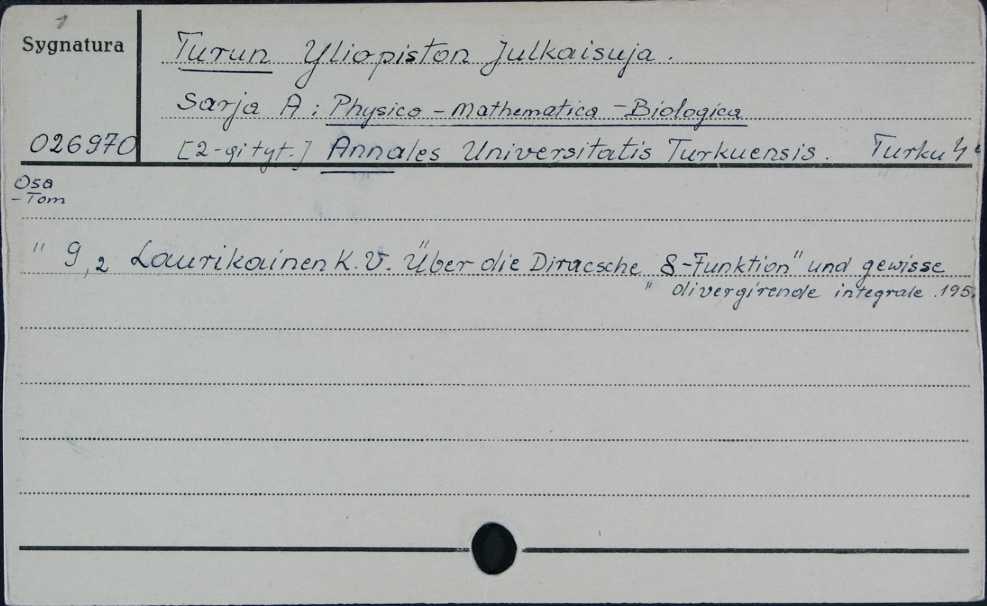 1
Sygnatura
Turun Yliopiston Julkaisuja.
Sarja A: Physico-Mathematica-Biologica
026970
[2-gi tyt.] Annales Universitatis Turkuensis. Turku
Osa
-Tom
" 9,2 Laurikainen K.V. Über die Diracsche "δ-Funktion" und gewisse
divergirende integrale. 195